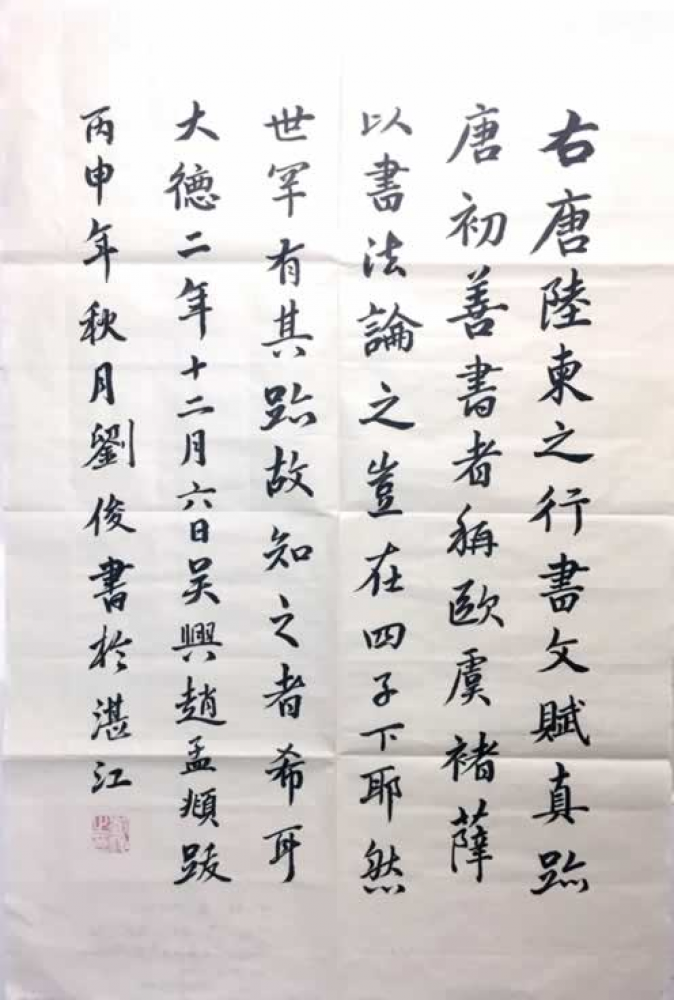 右唐陸東之行書文賦真跡
唐初善書者稱歐虞褚薛
以書法論之豈在四子下耶然
世罕有其跡故知之者希耳
大德二年十二月六日吴興趙孟頫跋
丙申年秋月劉俊書於湛江